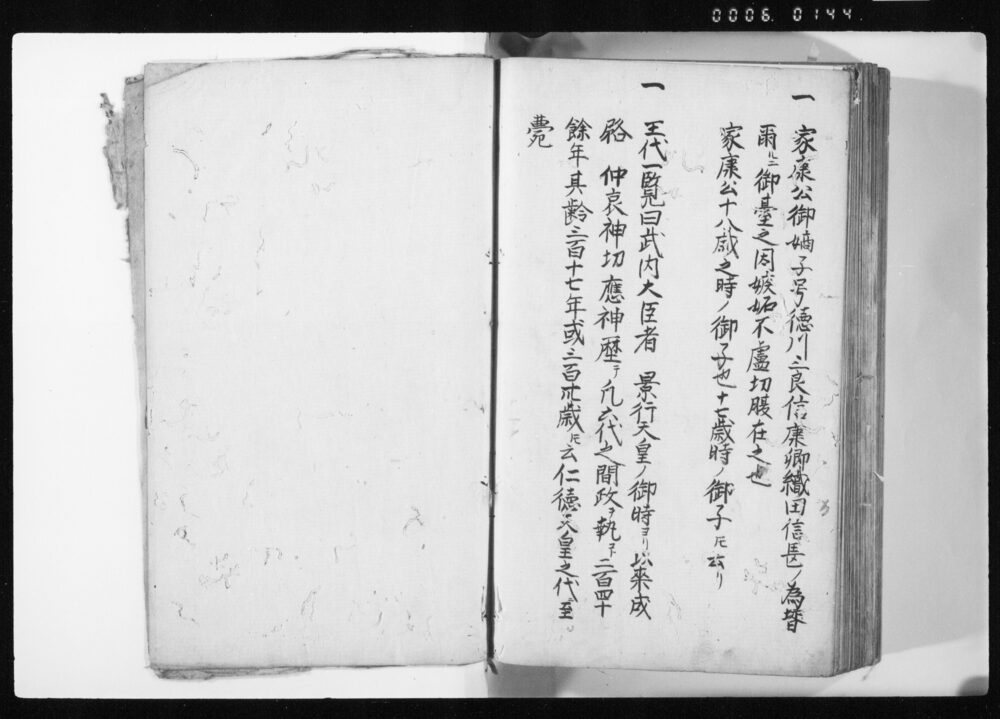 0006 0144
一 家康公御嫡子号徳川三良信康卿織田信長ノ為聟
爾ルニ御臺之因嫉妬不慮切腹在之也
家康公十八歳之時ノ御子也十七歳時ノ御子トモ云リ
一 王代一覧曰武内大臣者 景行天皇ノ御時ヨリ以来成
務 仲哀神功應神歴テ凡六代之間政ヲ執コト二百四十
餘年其齢三百十七年或三百卅歳トモ云仁徳天皇之代ニ至
薨